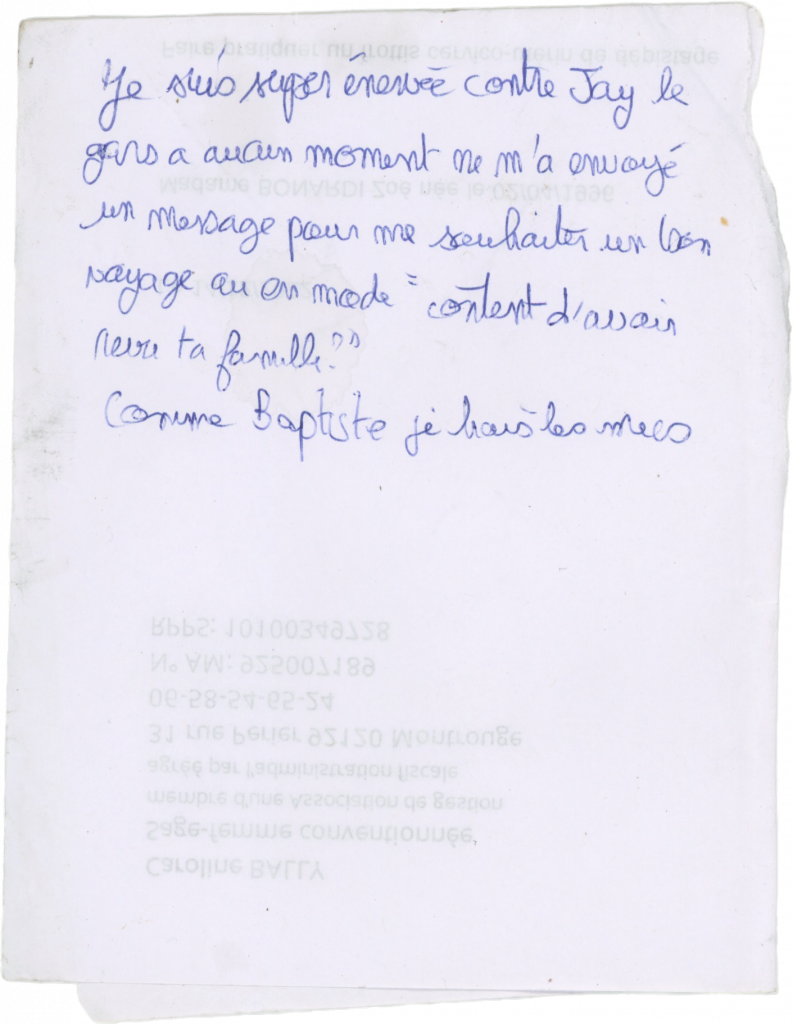 Faire pratiquer un frottis cervico-utérin de dépistage
Je suis super énervée contre Jay le
gars a aucun moment ne m'a envoyé
Madame BONARDI Zoé née le 02/04/1996
un message pour me souhaiter un bon
voyage ou en mode "content d'avoir
revu ta famille?"
Comme Baptiste je hais les mecs
RPPS: 10100349728
N° AM: 925007189
06-58-54-65-24
31 rue Perier 92120 Montrouge
agréé par l'administration fiscale
membre d'une Association de gestion
Sage-femme conventionnée
Caroline BALLY